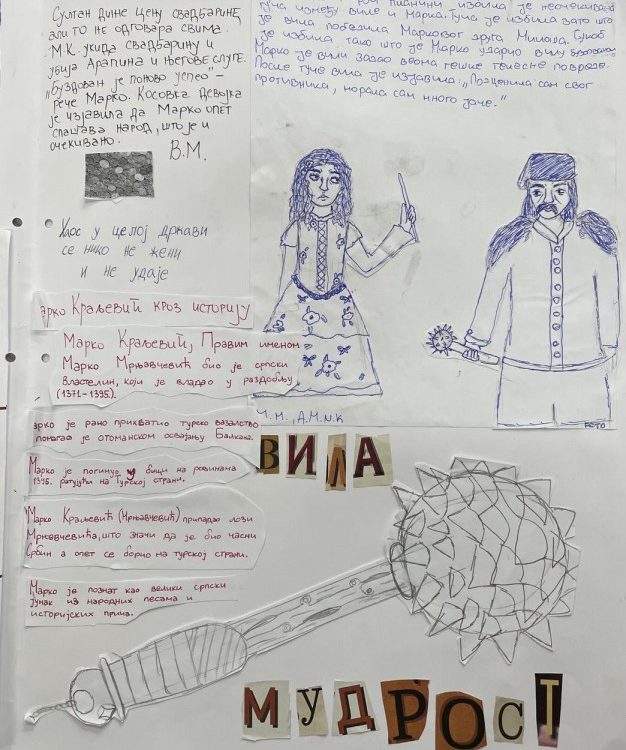 Султан диже цену свадбарине,
али то не одговара свима.
М.К. укида свадбарину и
убија Арапина и његове слуге.
„Буздован је поново успео"-
рече Марко. Косовка Девојка
је изјавила да Марко опет
спашава народ, што је и
очекивано.
В.М.
Хаос у целој држави
се нико не жени
и не удаје
планини избила је неочекивана
туча између виле и Марка. Туча је избила зато што
је вила победила Марковог друга Милоша. Сукоб
је избила тако што је Марко ударио вилу буздованом.
Марко је вили задао веома тешке телесне повреде.
После туче вила је изјавила: „Подценила сам свог
противника, морала сам много јаче."
арко Краљевић кроз историју
Марко Краљевић, Правим именом
Марко Мрњавчевић био је српски
властелин, који је владао у раздобљу
(1371-1395).
арко је рано прихватио турско вазалство
помагао је отоманском освајању Балкана.
Марко је погинуо у бици на ровинама
1395. ратујући на Турској страни.
Марко Краљевић (Мрњавчевић) припадао лози
Мрњевчевића, што значи да је био часни
Србин а опет се борио на турској страни.
Марко је познат као велики српски
јунак из народних песама и
историјских прича.
ВИЛА
МУДРОСТ